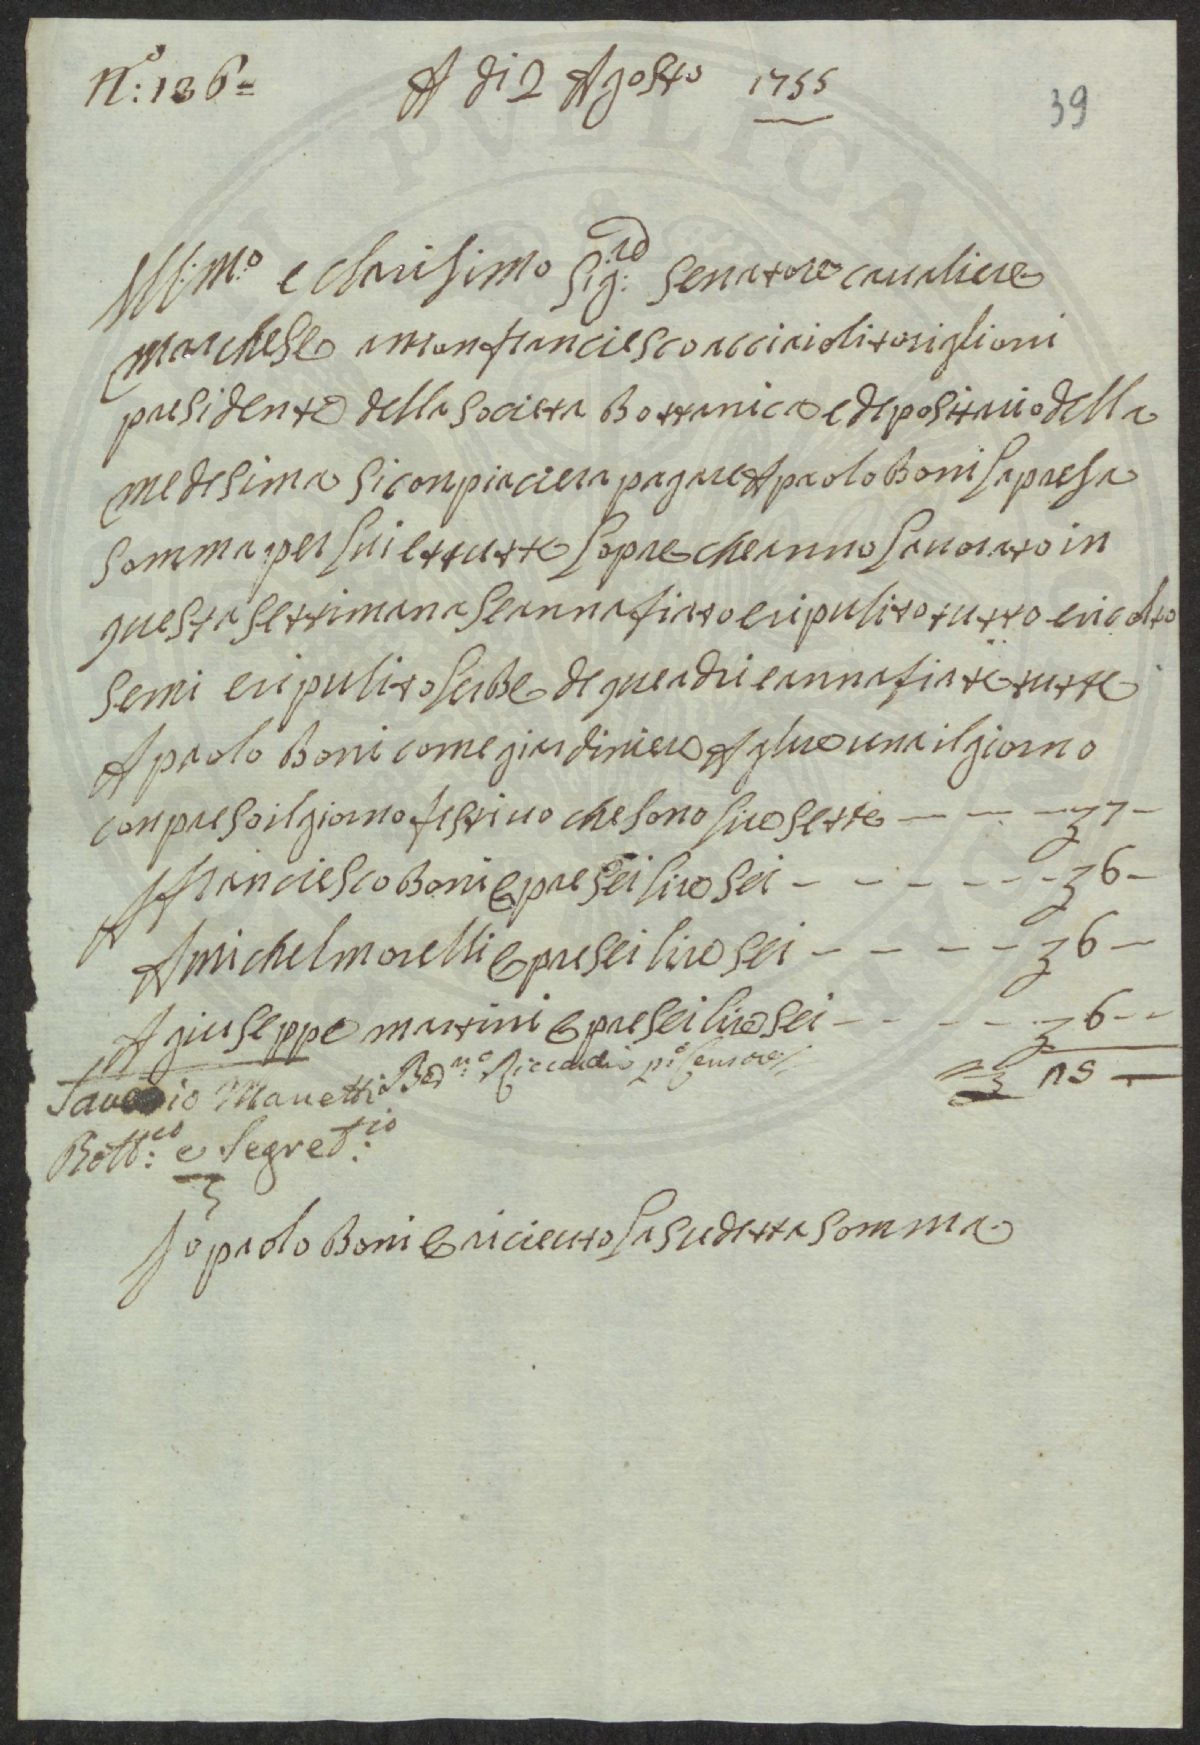 N.o: 136=
A di 2 Agosto 1755
39
Ill:mo e clarisimo Sig:re Senatore caualiere
marchese antonfranciesco acciaioli torigliorni
presidente della societa Bottanica e depositario della
medesima si conpiaciera pagare A paolo Boni la presa
somma per lui e ttutte lopre che anno lauorato in
questa settimana se annafiato e ripulito tutto e ricolto
semi e ripulito lerbe de quadri e annafiate tutte
A paolo Boni come giardiniere A lire una il giorno
conpreso il giorno festiuo che sono lire sette — — — 7 —
A franciesco Boni Epre sei lire sei — — — — — — 6 —
A michel morelli Epre sei lire sei — — — — 6 —
A giuseppe martini Epre sei lire sei — — — — 6 — —
Sauerio Manetti Ber.no Riccardi po Censore
25 —
Bott:co e Segret:rio
Io paolo Boni E riceuto la sudetta somma